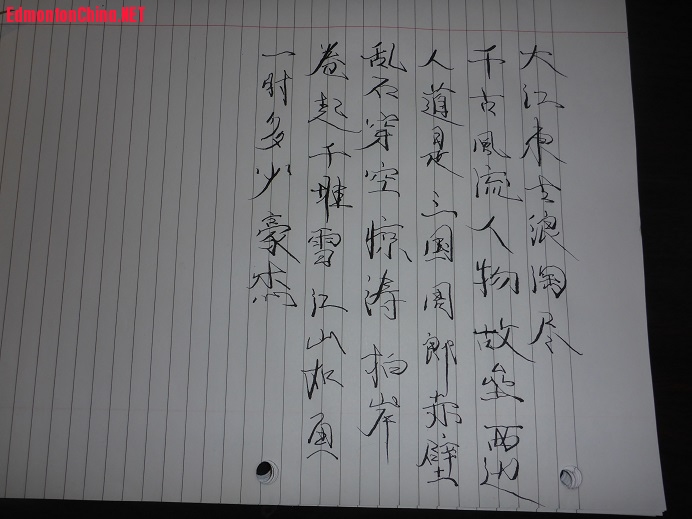 EdmontonChina.NET
大江東去浪淘尽
千古風流人物故垒西边
人道是三國周郎赤壁
乱石穿空惊涛拍岸
卷起千堆雪江山如画
一时多少豪杰